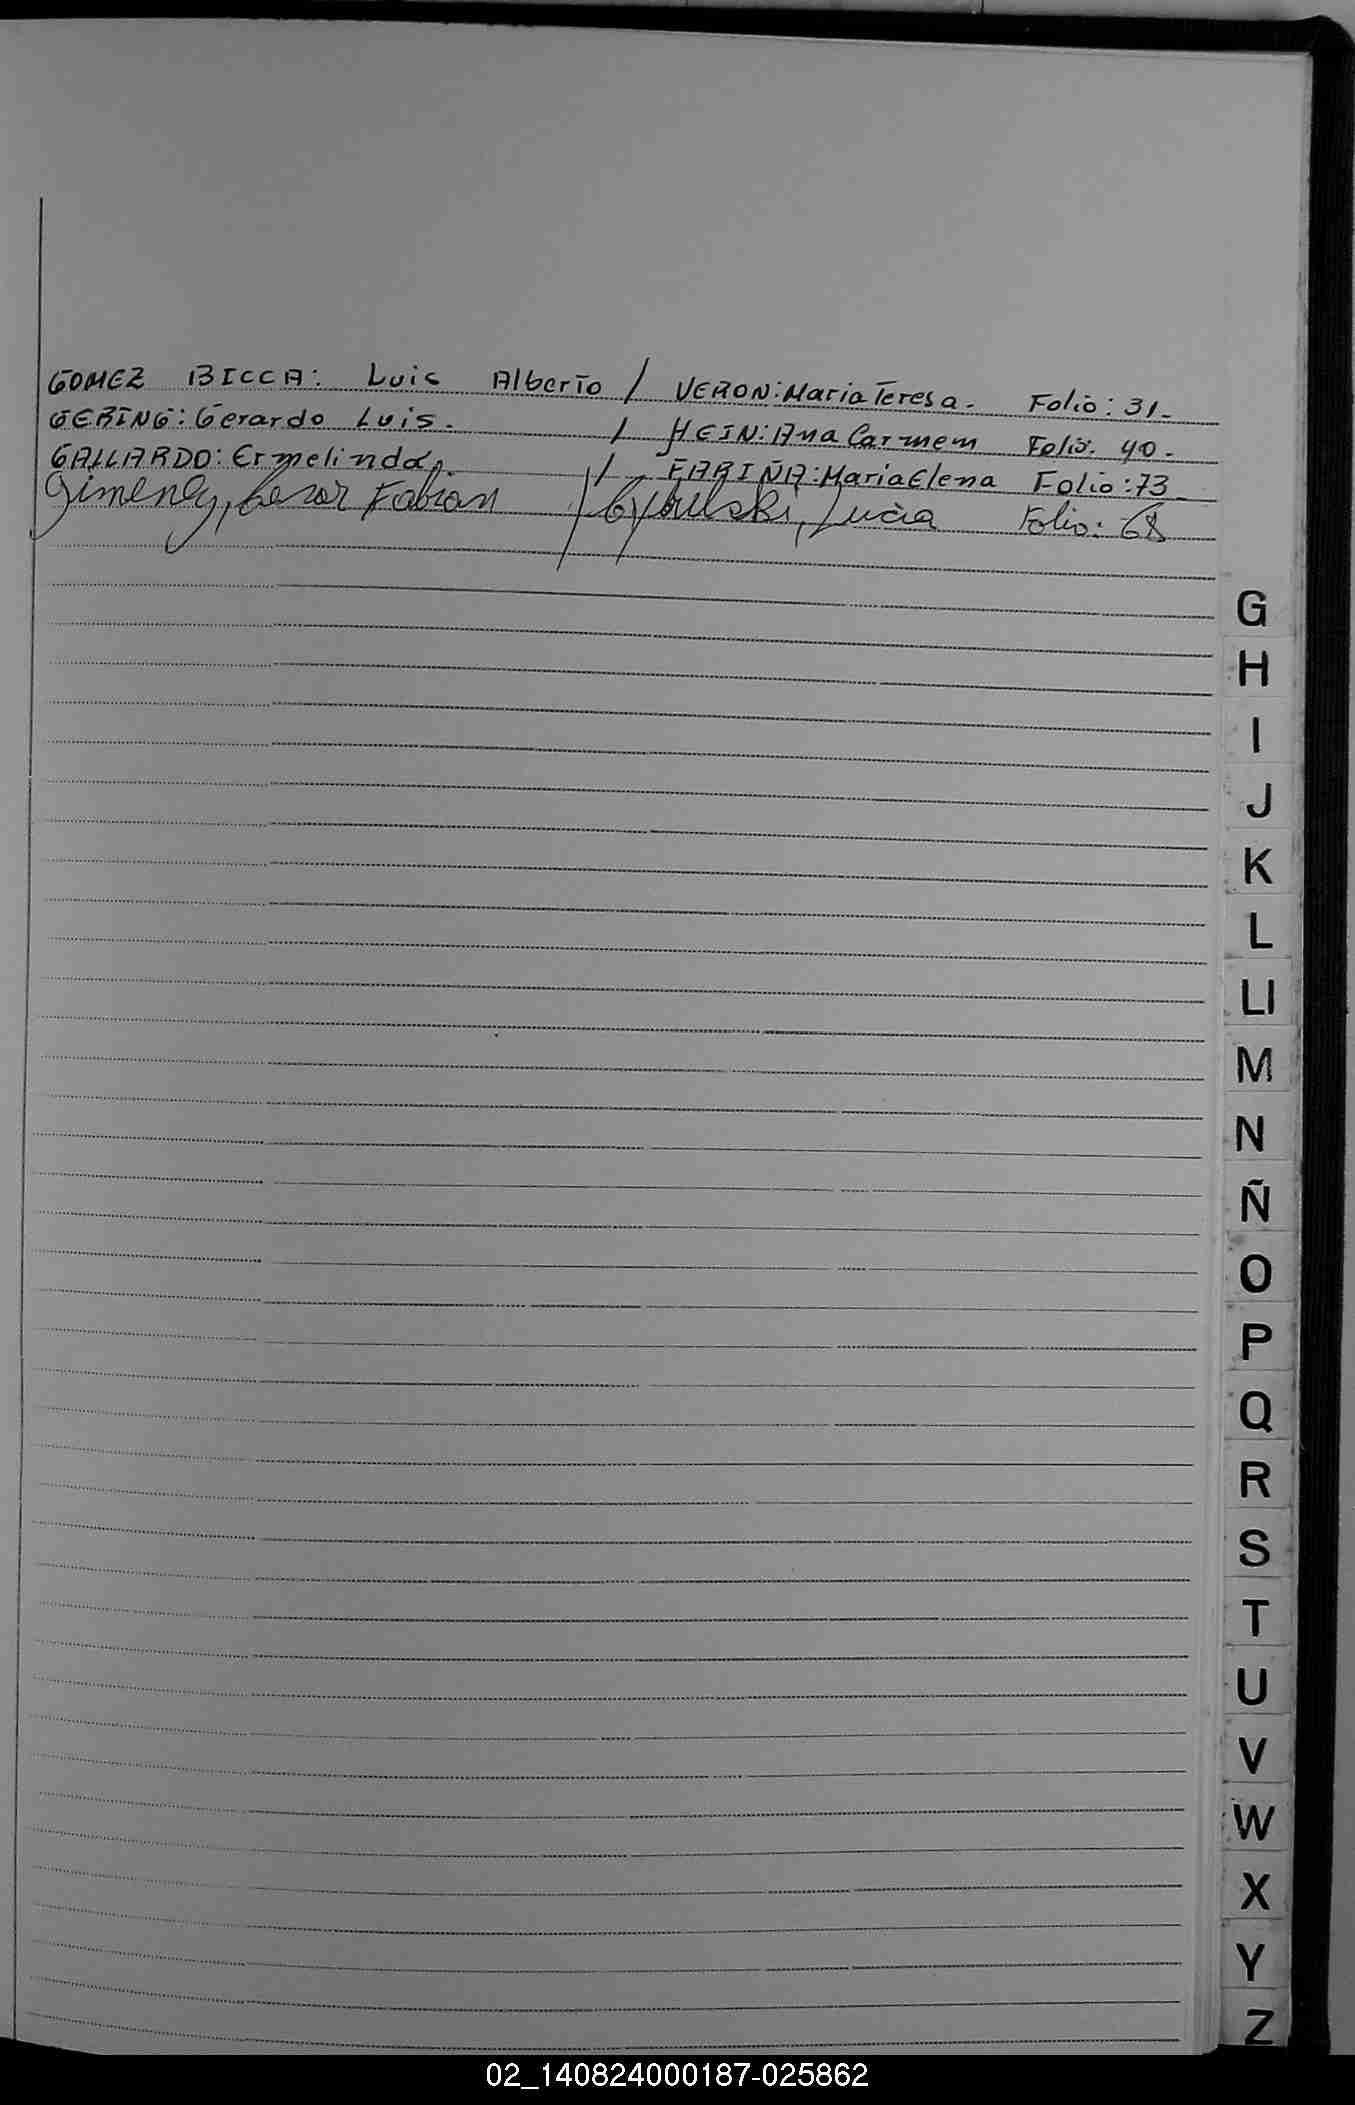 GOMEZ BICCA: Luis Alberto / VERON: Maria Teresa. Folio: 31.
GERING: Gerardo Luis. / HEIN: Ana Carmem Folio. 40.
GALLARDO: Ermelinda. / FARIÑA: Maria Elena Folio: 73
Gimenez, Cesar Fabian / Lucia Folio: 68
G
H
I
J
K
L
Ll
M
N
Ñ
O
P
Q
R
S
T
U
V
W
X
Y
Z
02_140824000187-025862